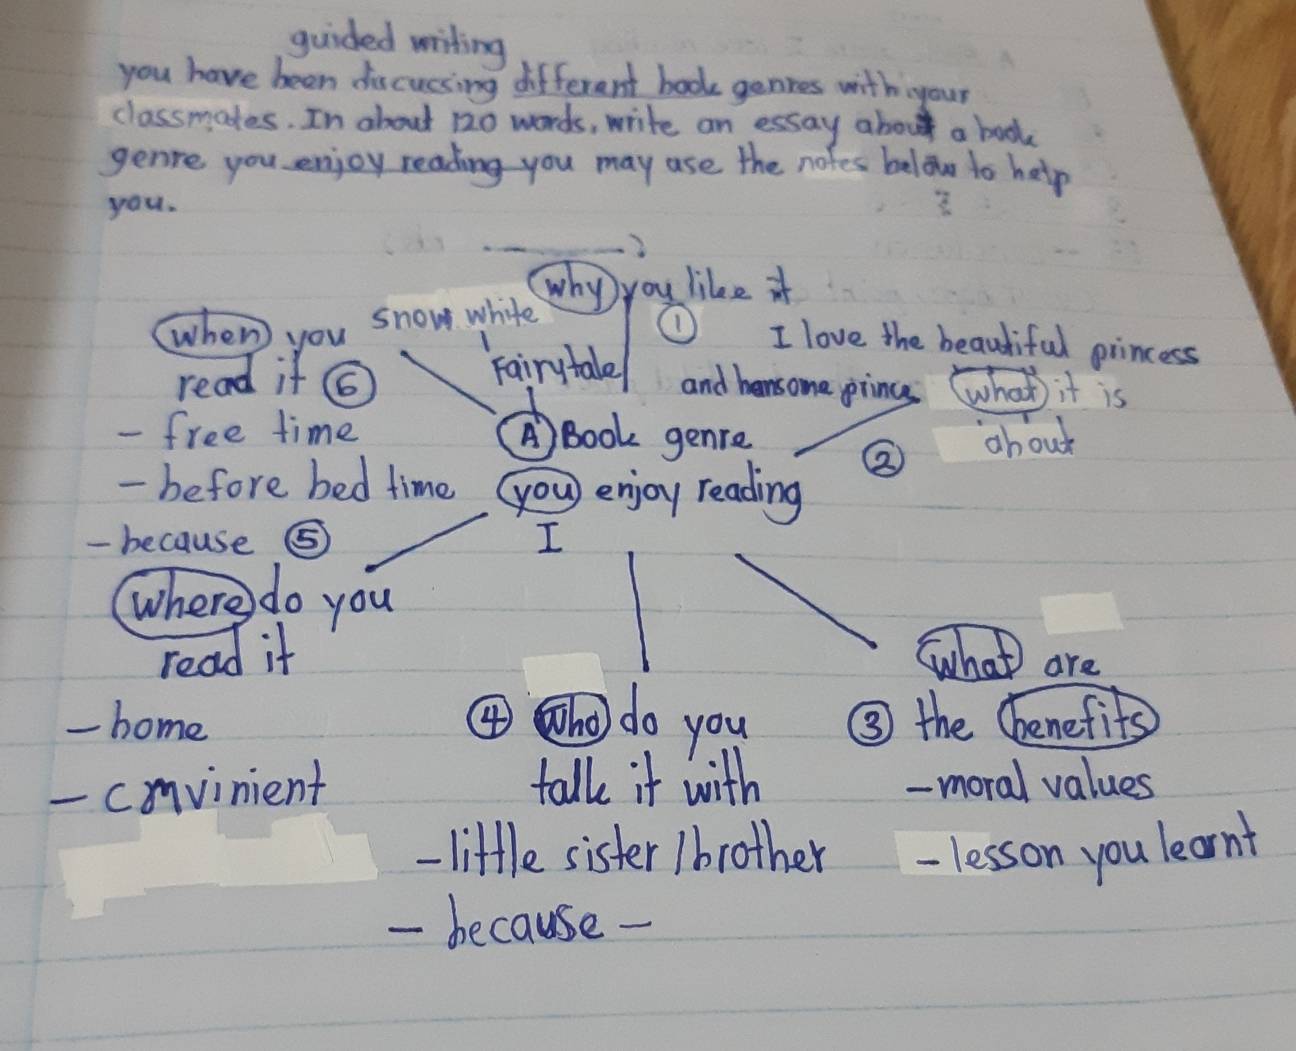 guided writing
you have been discucsing different book genres with your
classmates. In about 120 words, write an essay about a book
genre you enjoy reading you may use the notes below to help
you.
?
why you like it
snow white
①
when you
I love the beautiful princess
read it ⑥
Fairytale
and hansome prince
what it is
- free time
A Book genre
②
about
- before bed time
you enjoy reading
- because ⑤
I
where do you
read it
what are
- home
④ who do you
③ the benefits
- cmvinient
talk it with
- moral values
- little sister / brother
- lesson you learnt
- because -